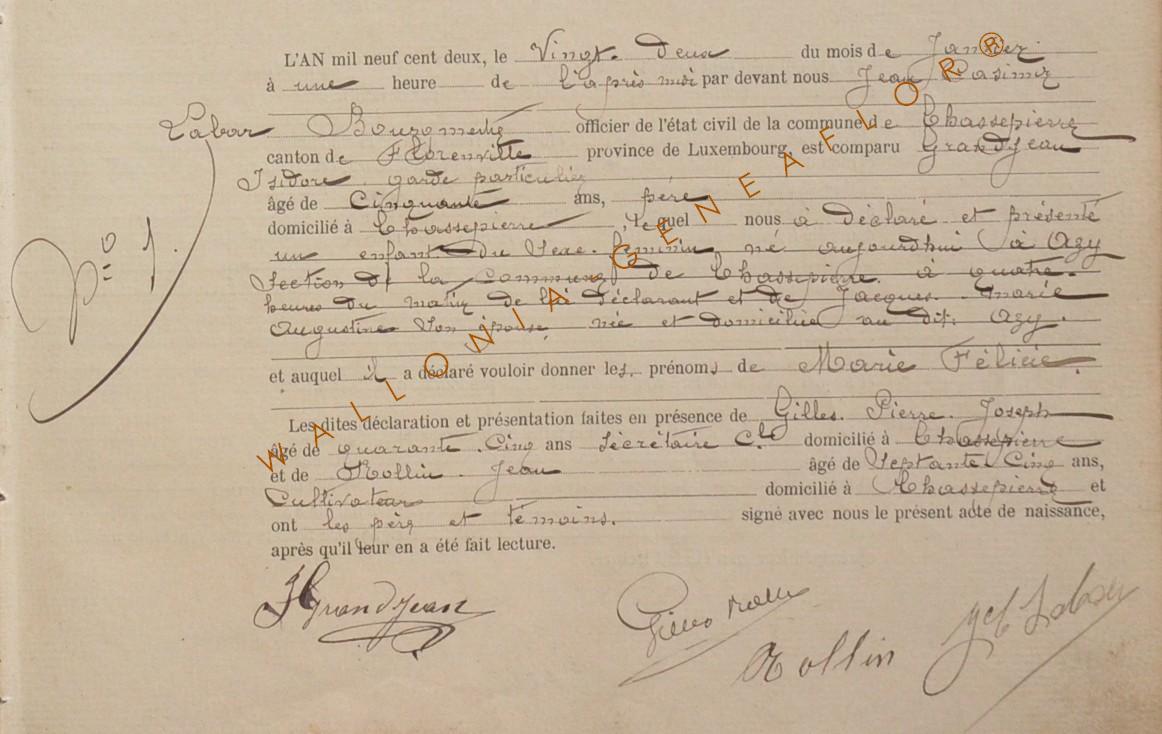 L'AN mil neuf cent deux, le Vingt-Deux du mois de Janvier
à une heure de l'après midi par devant nous Jean Casimir
Labar Bourgmestre officier de l'état civil de la commune de Chassepierre
canton de Florenville province de Luxembourg, est comparu Grandjean
Isidore garde particulier
âgé de Cinquante ans, père
domicilié à Chassepierre, lequel nous à déclaré et présenté
un enfant du Sexe féminin né aujourdhui à Azy
Section de la Commune de Chassepierre à quatre
heures du matin de lui déclarant et de Jacques Marie
Augustine Son épouse née et domiciliée au dit Azy.
et auquel il a déclaré vouloir donner les prénoms de Marie Félicie
Les dites déclaration et présentation faites en présence de Gilles Pierre Joseph
âgé de quarante Cinq ans Secrétaire Cle domicilié à Chassepierre
et de Rollin Jean âgé de Septante Cinq ans,
Cultivateur domicilié à Chassepierre et
ont les père et témoins. signé avec nous le présent acte de naissance,
après qu'il leur en a été fait lecture.
N° 1.
JGrandjean
Rollin
WALLONIA GENEAFLORR®